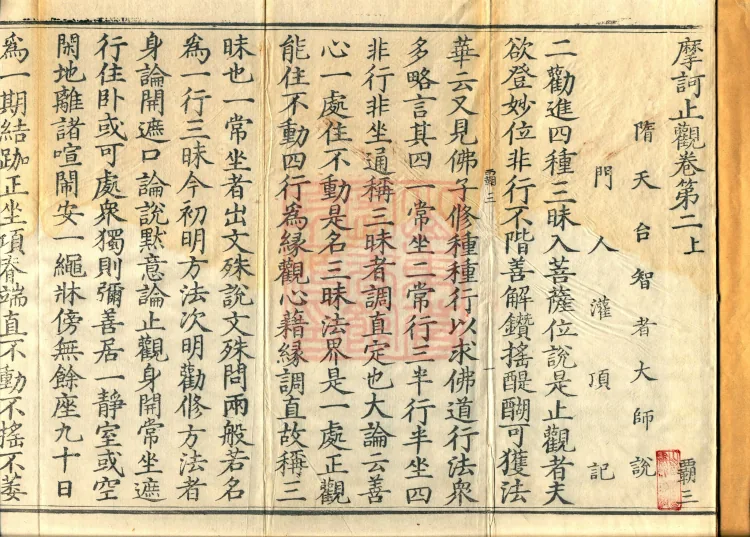 摩訶止觀卷第二上
霸三
隋天台智者大師說
門人灌頂記
二勸進四種三昧入菩薩位說是止觀者夫
欲登妙位非行不階善解鑽搖醍醐可獲法
霸三
華云又見佛子修種種行以求佛道行法衆
多略言其四一常坐二常行三半行半坐四
非行非坐通稱三昧者調直定也大論云善
心一處住不動是名三昧法界是一處正觀
能住不動四行爲緣觀心藉緣調直故稱三
昧也一常坐者出文殊說文殊問兩般若名
爲一行三昧今初明方法次明勸修方法者
身論開遮口論說默意論止觀身開常坐遮
行住卧或可處衆獨則彌善居一靜室或空
閑地離諸喧鬧安一繩牀傍無餘座九十日
爲一期結跏正坐項脊端直不動不搖不萎